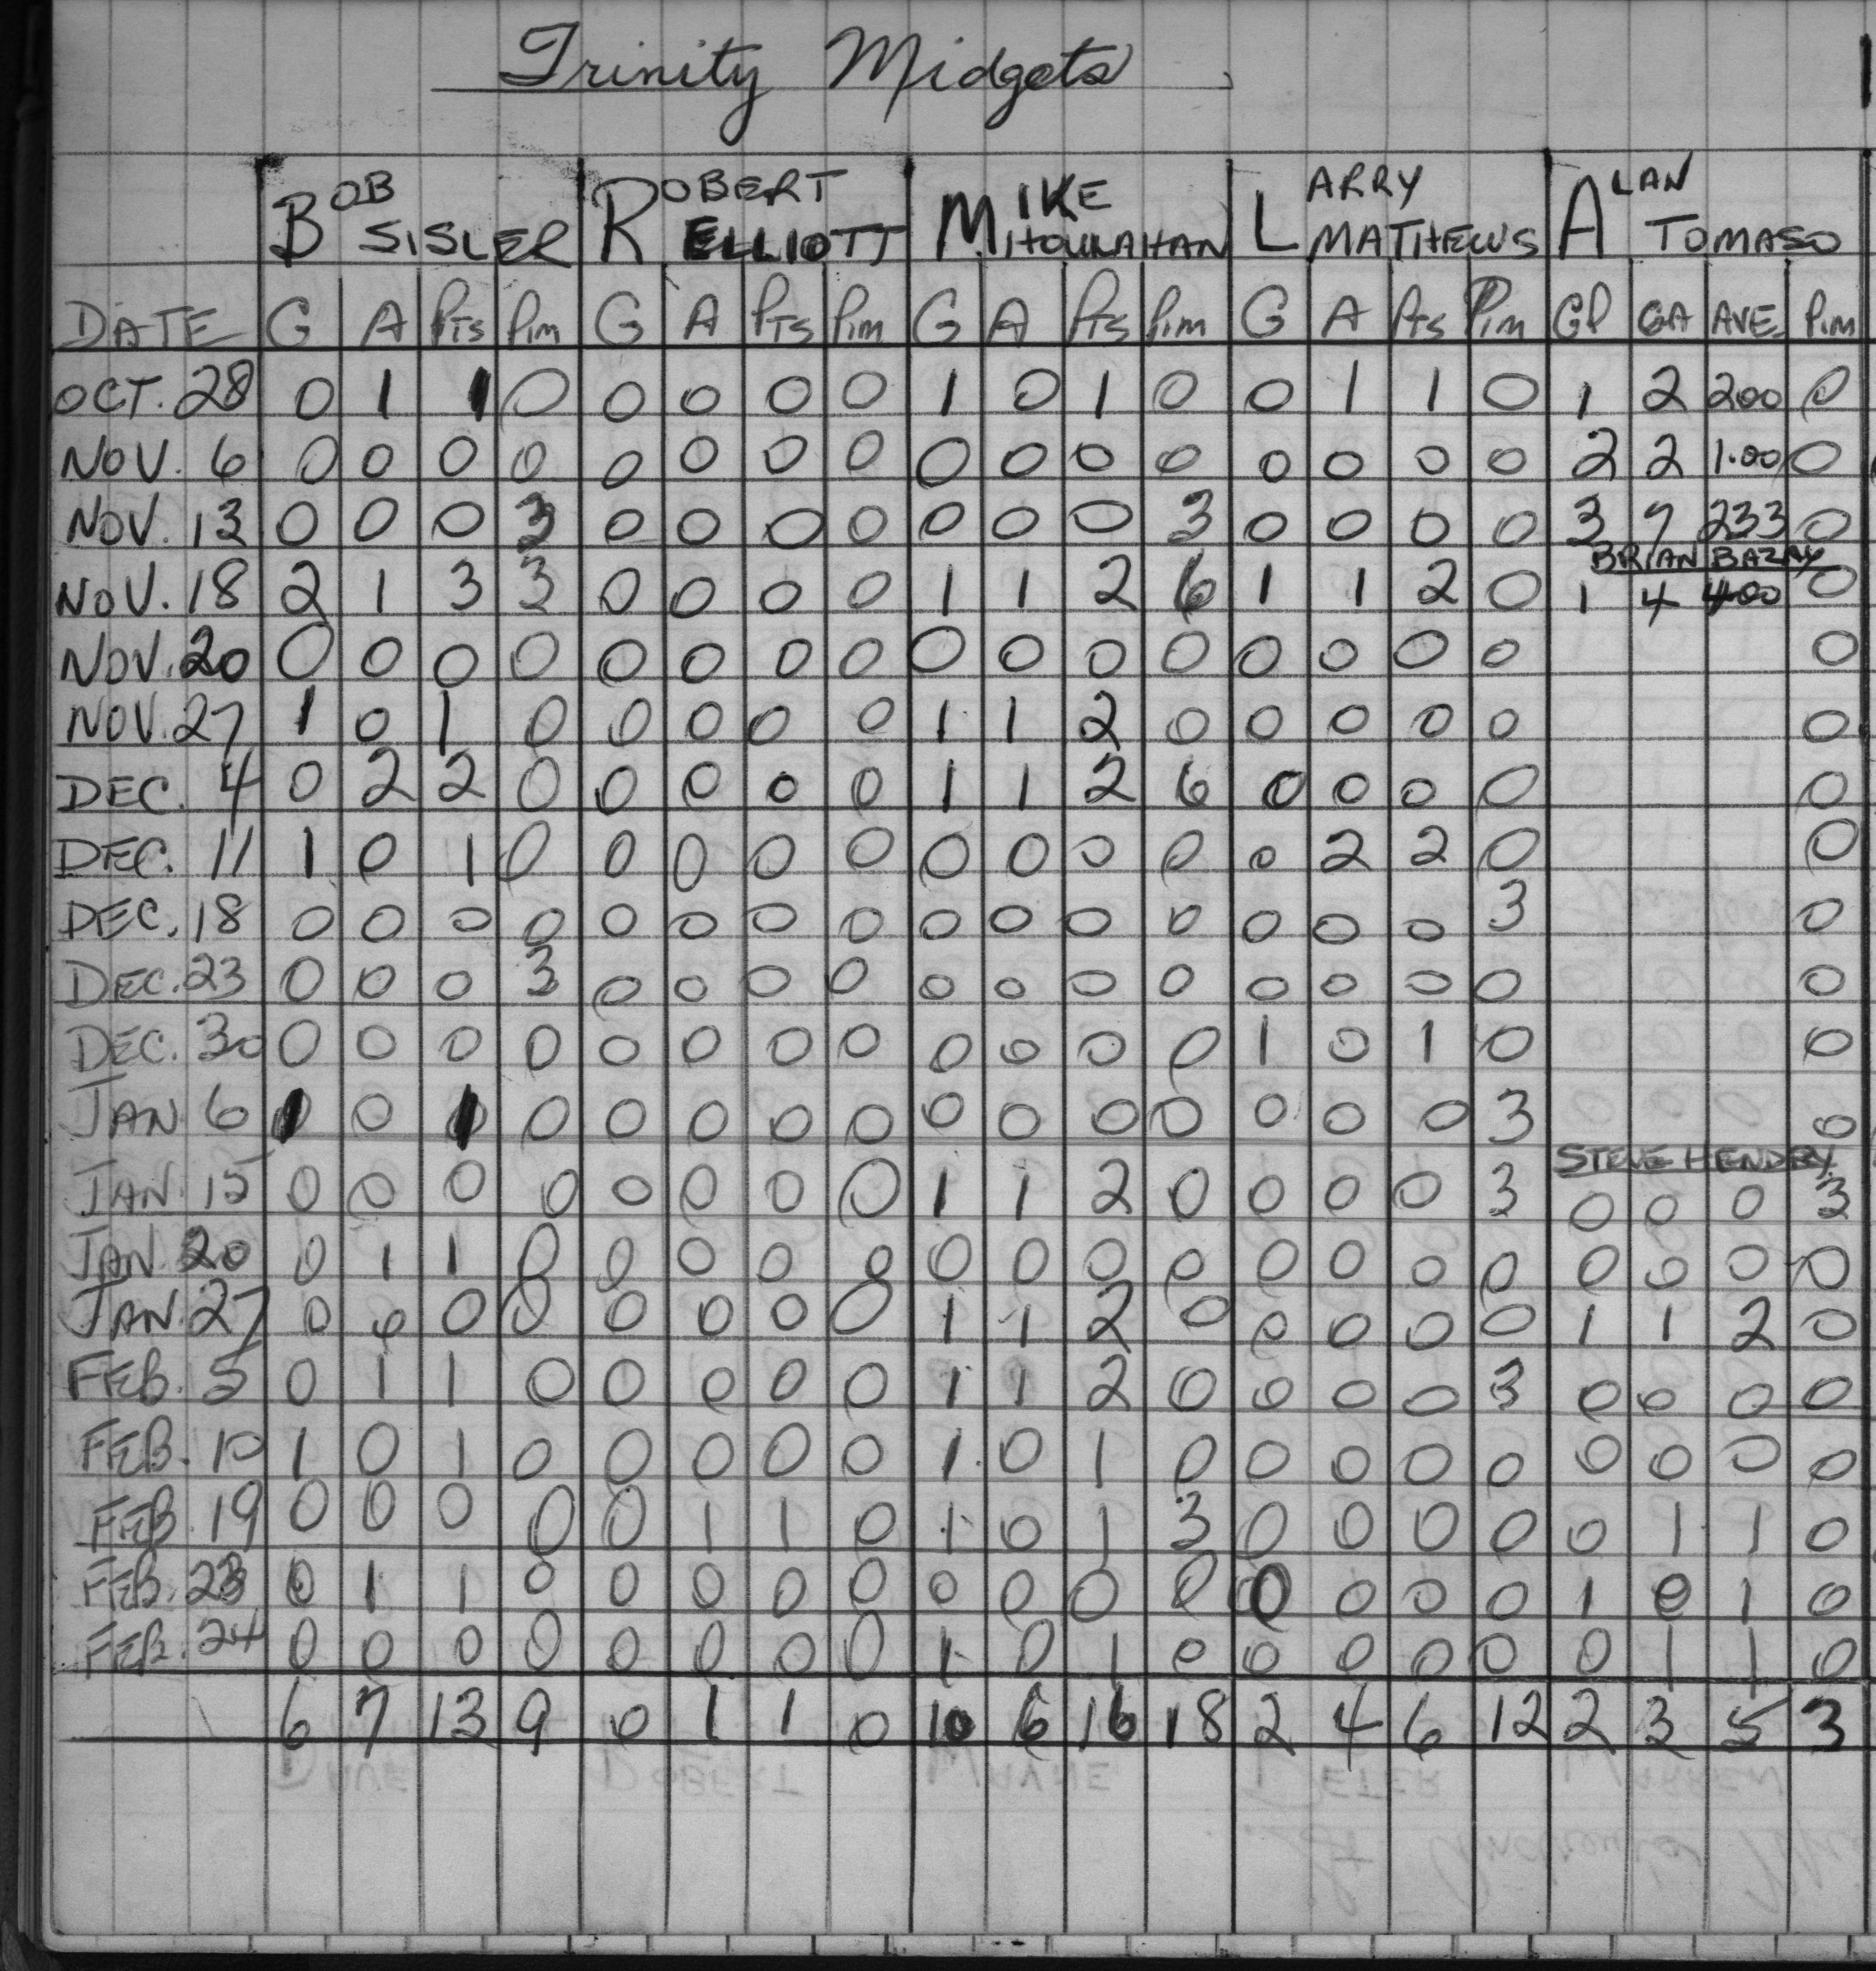 Trinity Midgets
BOB SISLER ROBERT ELLIOTT MIKE MIHOULAHAN LARRY MATHEWS ALAN TOMASO
DATE G A PTS PIM G A PTS PIM G A PTS PIM G A PTS PIM GP GA AVE. PIM
OCT. 28 0 1 1 0 0 0 0 0 1 0 1 0 0 1 1 0 1 2 200 0
NOV. 6 0 0 0 0 0 0 0 0 0 0 0 0 0 0 0 0 2 2 1.00 0
NOV. 13 0 0 0 3 0 0 0 0 0 0 0 3 0 0 0 0 3 7 233 0
BRIAN
NOV. 18 2 1 3 3 0 0 0 0 1 1 2 6 1 1 2 0 1 4 400 0
NOV. 20 0 0 0 0 0 0 0 0 0 0 0 0 0 0 0 0 0
NOV. 27 1 0 1 0 0 0 0 0 1 1 2 0 0 0 0 0 0
DEC. 4 0 2 2 0 0 0 0 0 1 1 2 6 0 0 0 0 0
DEC. 11 1 0 1 0 0 0 0 0 0 0 0 0 0 2 2 0 0
DEC. 18 0 0 0 0 0 0 0 0 0 0 0 0 0 0 0 3 0
DEC. 23 0 0 0 3 0 0 0 0 0 0 0 0 0 0 0 0 0
DEC. 30 0 0 0 0 0 0 0 0 0 0 0 0 1 0 1 0 0
JAN 6 1 0 1 0 0 0 0 0 0 0 0 0 0 0 0 3 0
STEVE HENDRY
JAN. 15 0 0 0 0 0 0 0 0 1 1 2 0 0 0 0 3 0 0 0 3
JAN. 20 0 1 1 0 0 0 0 0 0 0 0 0 0 0 0 0 0 0 0 0
JAN. 27 0 0 0 0 0 0 0 0 1 1 2 0 0 0 0 0 1 1 2 0
FEB. 5 0 1 1 0 0 0 0 0 1 1 2 0 0 0 0 3 0 0 0 0
FEB. 10 1 0 1 0 0 0 0 0 1 0 1 0 0 0 0 0 0 0 0 0
FEB. 19 0 0 0 0 0 1 1 0 1 0 1 3 0 0 0 0 0 1 1 0
FEB. 23 0 1 1 0 0 0 0 0 0 0 0 0 0 0 0 0 1 0 1 0
FEB. 24 0 0 0 0 0 0 0 0 1 0 1 0 0 0 0 0 0 1 1 0
6 7 13 9 0 1 1 0 10 6 16 18 2 4 6 12 2 3 5 3